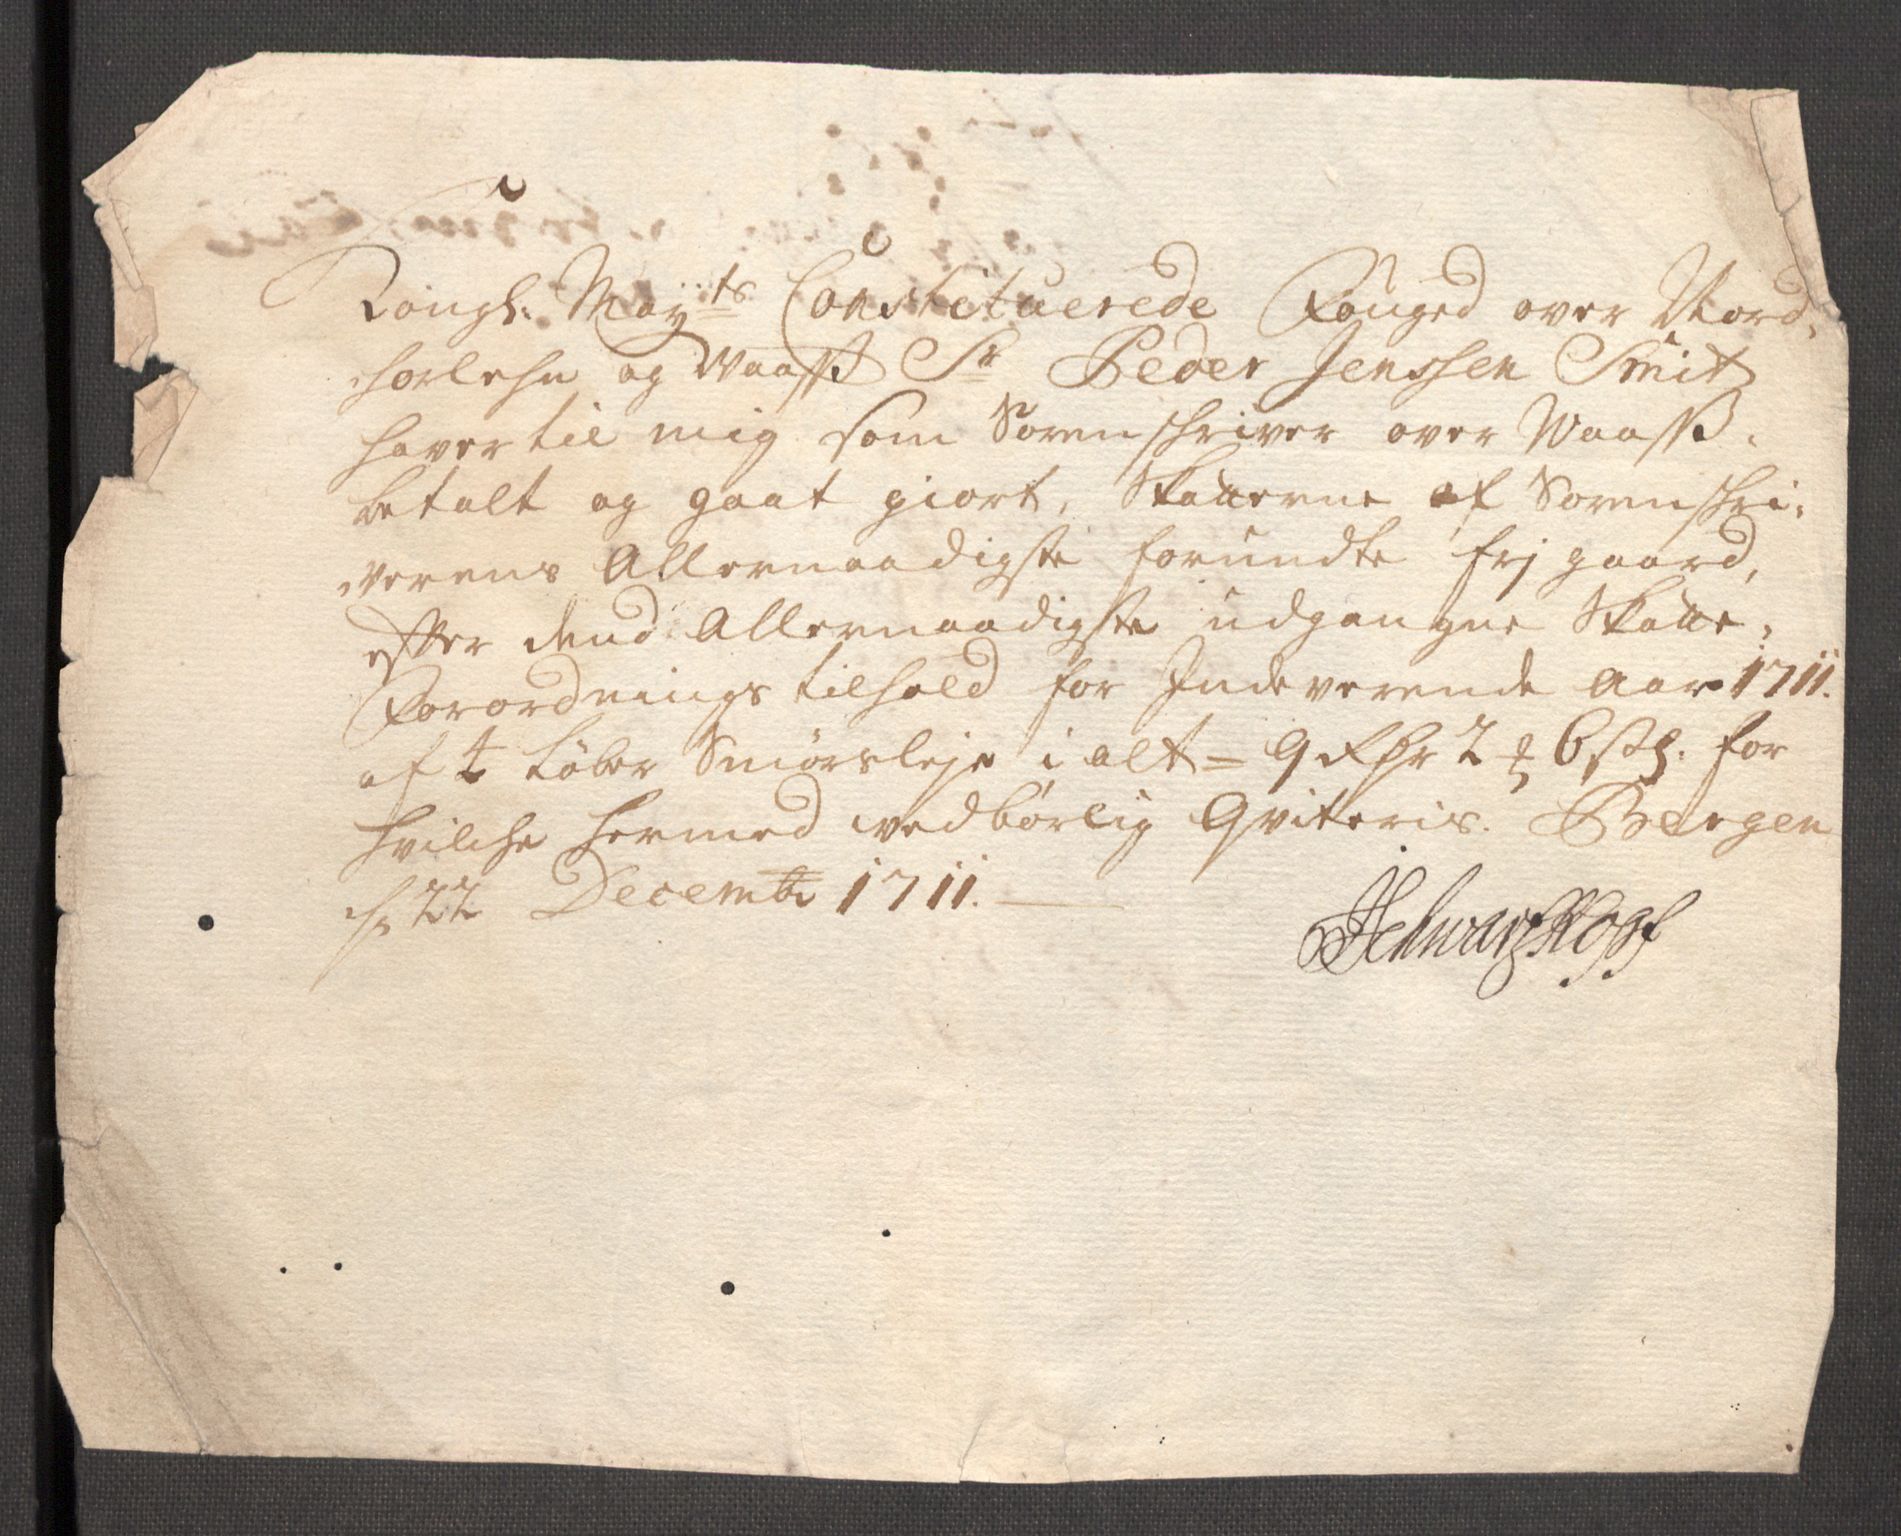 Kongl: May:ts Constituerede Fouged over Nord,
horlehn og Waass Sr Peder Jenssen Smit
hafver til mig som Sorenschriver over Waass,
betalt og gaat giort, Skatterne af Sorenschri,
verens Allernaadigste forundte frj gaard,
efter dend Allernaadigste udgangne Skatte,
Forordnings tilhold for Indeverende Aar 1711.
af Løber Smørsleje i alt = 9 Rdr 2 6 sk. for
hvilche hermed vedbørlig Qviteris. Bergen
d. 22 Decembr 1711.
Schwartzkopf